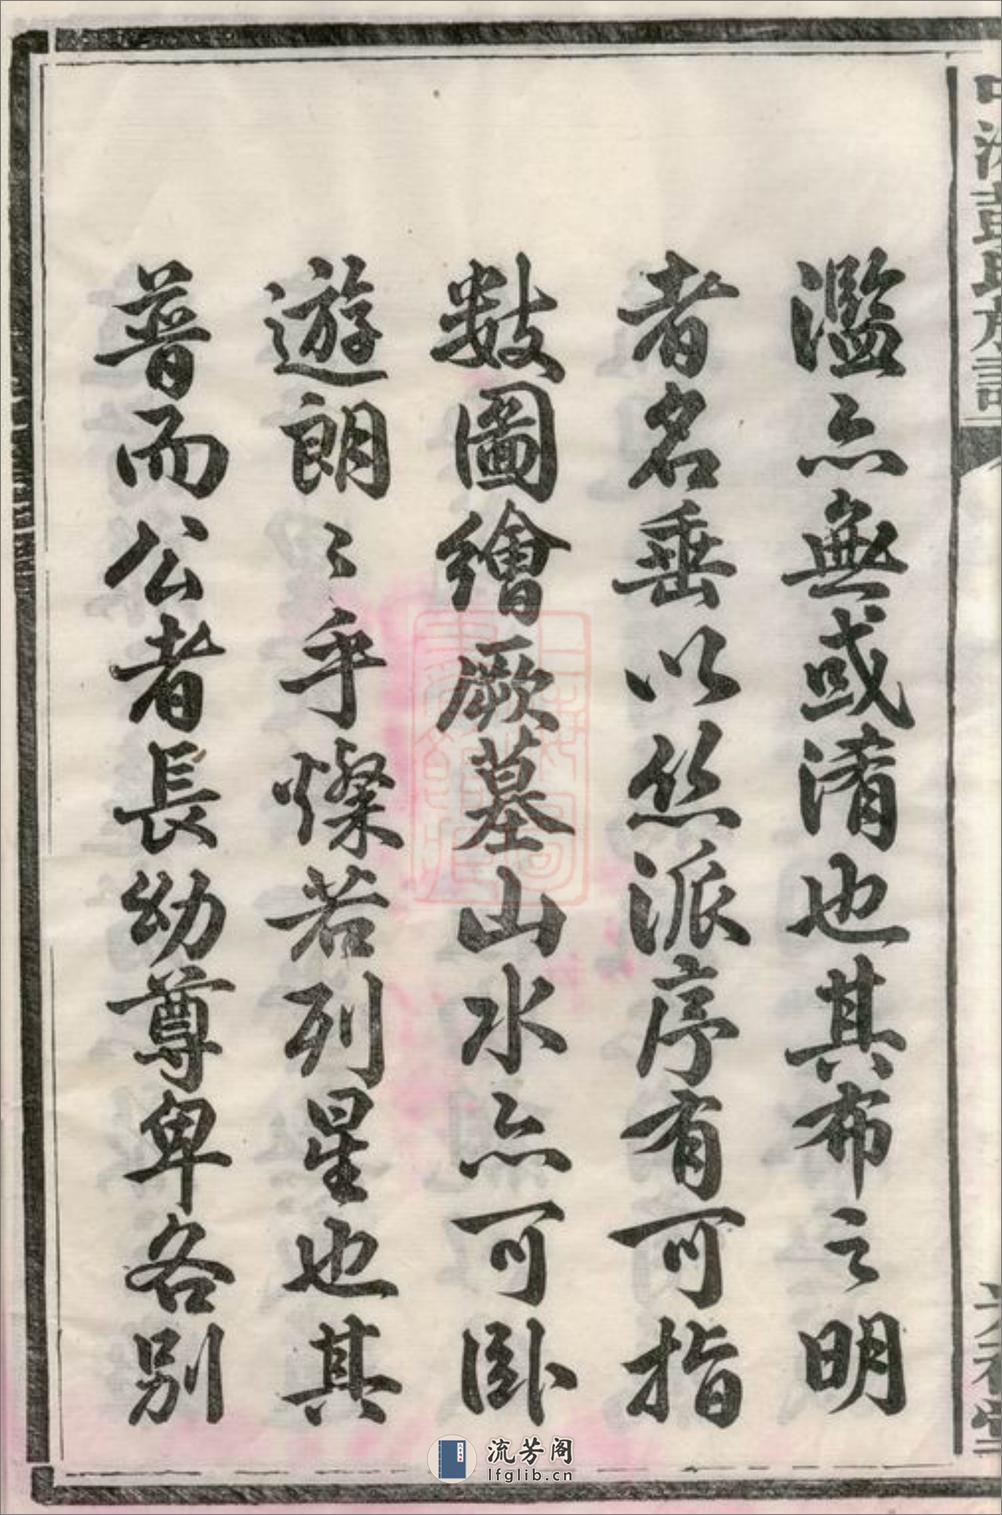 濫亦無或淆也其布之明
者名垂以丝派序有可指
数圖繪厥墓山水亦可卧
遊朗〻乎燦若列星也其
普而公者長幼尊卑各別
流芳阁
lfglib.cn